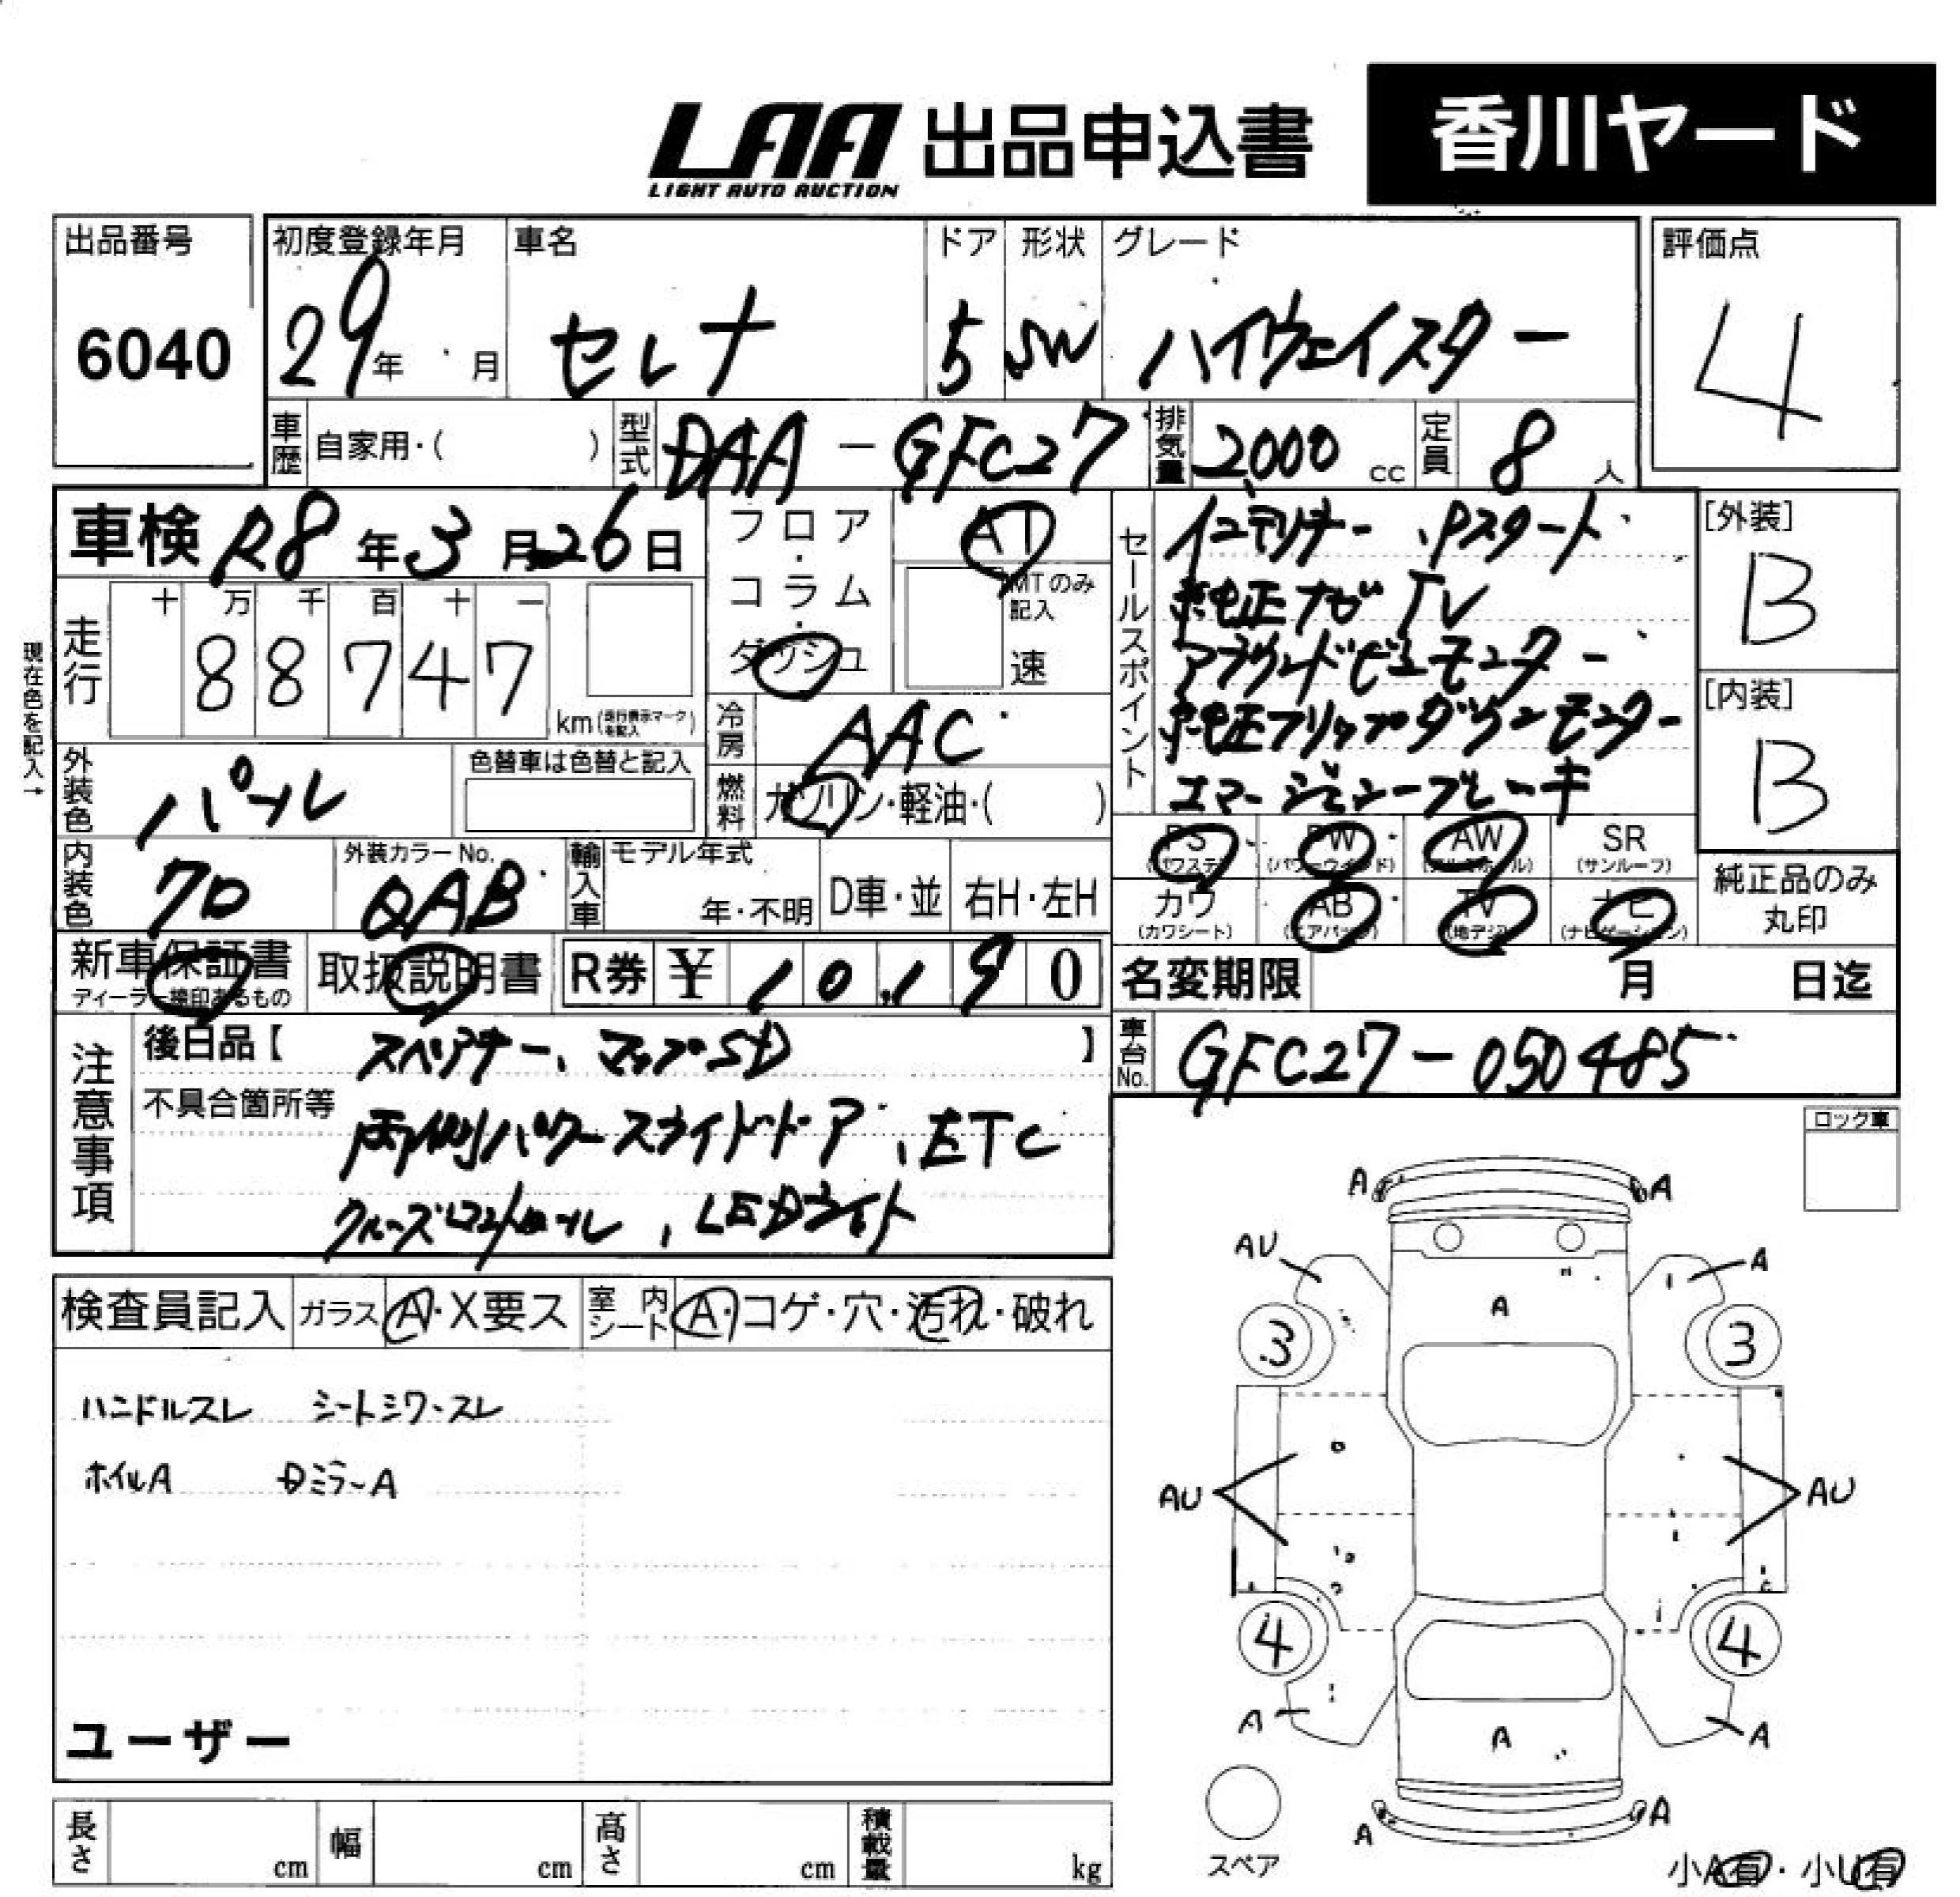 LAA 出品申込書 香川ヤード
LIGHT AUTO AUCTION
出品番号 初度登録年月 車名 ドア 形状 グレード 評価点
6040 29年 月 セレナ 5 SW ハイウェイスター 4
車歴 自家用・( ) 型式 DAA-GFC27 排気量 2000 cc 定員 8 人
車検 R8年3月26日
フロア・コラム・ダッシュ
AT
MTのみ記入
速
現在色を記入→
走行 十 万 千 百 十 一
8 8 7 4 7
km(走行表示マークを記入)
冷房 AAC
外装色 パール 色替車は色替と記入
燃料 ガソリン・軽油・( )
内装色 クロ 外装カラーNo. QAB 輸入車 モデル年式 年・不明 D車・並 右H・左H
新車保証書 取扱説明書 R券 ¥ 10,190
ディーラー捺印あるもの
セールスポイント
インテリキー Pスタート
純正ナビ TV
アラウンドビューモニター
純正フリップダウンモニター
エマージェンシーブレーキ
[外装]
B
[内装]
B
PS PW AW SR
(パワステ) (パワーウインド) (アルミホイル) (サンルーフ)
カワ AB TV ナビ
(カワシート) (エアバッグ) (地デジ) (ナビゲーション)
純正品のみ
丸印
名変期限 月 日迄
車台No. GFC27-050485
注意事項
後日品【 スペアキー、マップSD 】
不具合箇所等 両側パワースライドドア、ETC
クルーズコントロール、LEDライト
検査員記入 ガラス A・X要ス 室内シート A・コゲ・穴・汚れ・破れ
ハンドルスレ シートシワ・スレ
ホイルA DミラーA
ユーザー
長さ cm 幅 cm 高さ cm 積載量 kg
ロック車
A A
AU A
A
3 3
AU AU
4 4
A A
A
A A
スペア
小A有・小U有